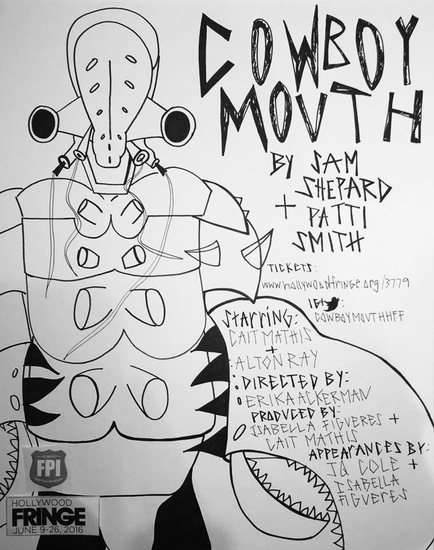 COWBOY
MOUTH
BY SAM
SHEPARD
+ PATTI
SMITH
TICKETS:
www.hollywoodfringe.org/3779
IG+
COWBOYMOUTHHFF
Starring:
CAIT MATHIS
+
ALTON RAY
DIRECTED BY:
ERIKA ACKERMAN
PRODUCED BY:
ISABELLA FIGVERES +
CAIT MATHIS
APPEARANCES BY:
JQ COLE +
ISABELLA
FIGVERES
FPI
HOLLYWOOD
FRINGE
JUNE 9-26, 2016